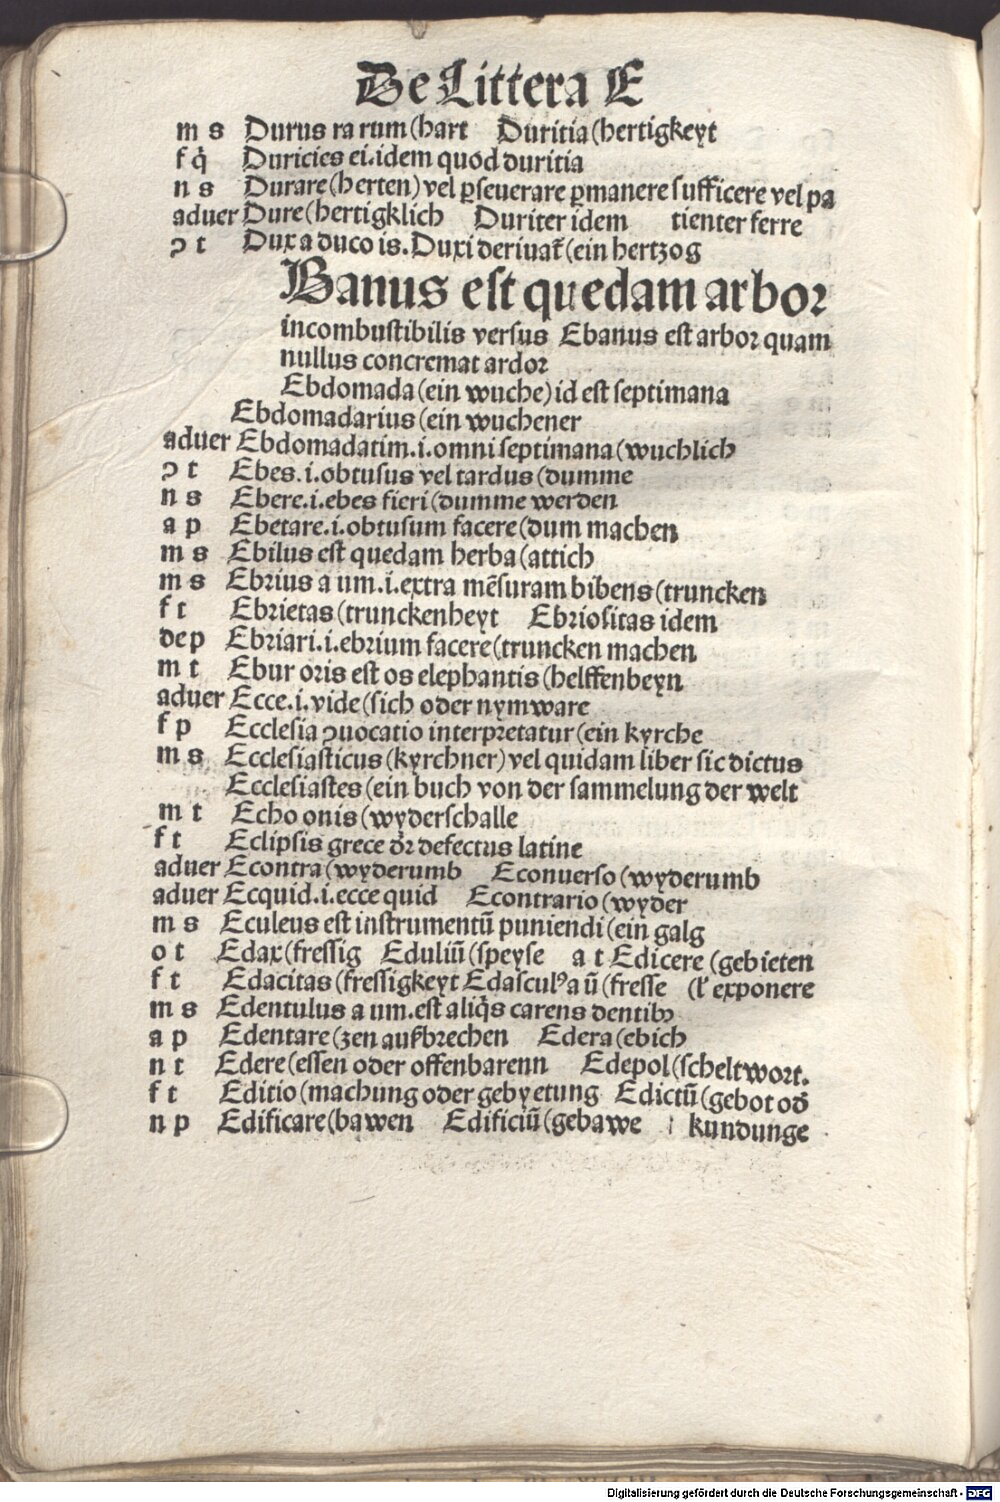 De Littera E
m s Durus ra rum (hart Duritia (hertigkeyt
f q̃ Duricies ei. idem quod duritia
n s Durare (herten) vel ꝑseuerare ꝑmanere sufficere vel pa
aduer Dure (hertigklich Duriter idem tienter ferre
ɔ t Dux a duco is. Duxi deriuat᷑ (ein hertzog
Banus est quedam arbor
incombustibilis versus Ebanus est arbor quam
nullus concremat ardor
Ebdomada (ein wuche) id est septimana
Ebdomadarius (ein wuchener
aduer Ebdomadatim .i. omni septimana (wuchlich
ɔ t Ebes .i. obtusus vel tardus (dumme
n s Ebere .i. ebes fieri (dumme werden
a p Ebetare .i. obtusum facere (dum machen
m s Ebilus est quedam herba (attich
m s Ebrius a um .i. extra mēsuram bibens (truncken
f t Ebrietas (trunckenheyt Ebriositas idem
de p Ebriari .i. ebrium facere (truncken machen
m t Ebur oris est os elephantis (helffenbeyn
aduer Ecce .i. vide (sich oder nymware
f p Ecclesia ɔuocatio interpretatur (ein kyrche
m s Ecclesiasticus (kyrchner) vel quidam liber sic dictus
Ecclesiastes (ein buch von der sammelung der welt
m t Echo onis (wyderschalle
f t Eclipsis grece dr̃ defectus latine
aduer Econtra (wyderumb Econuerso (wyderumb
aduer Ecquid .i. ecce quid Econtrario (wyder
m s Eculeus est instrumentū puniendi (ein galg
o t Edax (fressig Eduliū (speyse a t Edicere (gebieten
f t Edacitas (fressigkeyt Edasculꝰ a ū (fresse (l' exponere
m s Edentulus a um. est aliq̃s carens dentibꝫ
a p Edentare (zen aufbrechen Edera (ebich
n t Edere (essen oder offenbarenn Edepol (scheltwort.
f t Editio (machung oder gebyetung Edictū (gebot od̃
n p Edificare (bawen Edificiū (gebawe kundunge
Digitalisierung gefördert durch die Deutsche Forschungsgemeinschaft - DFG